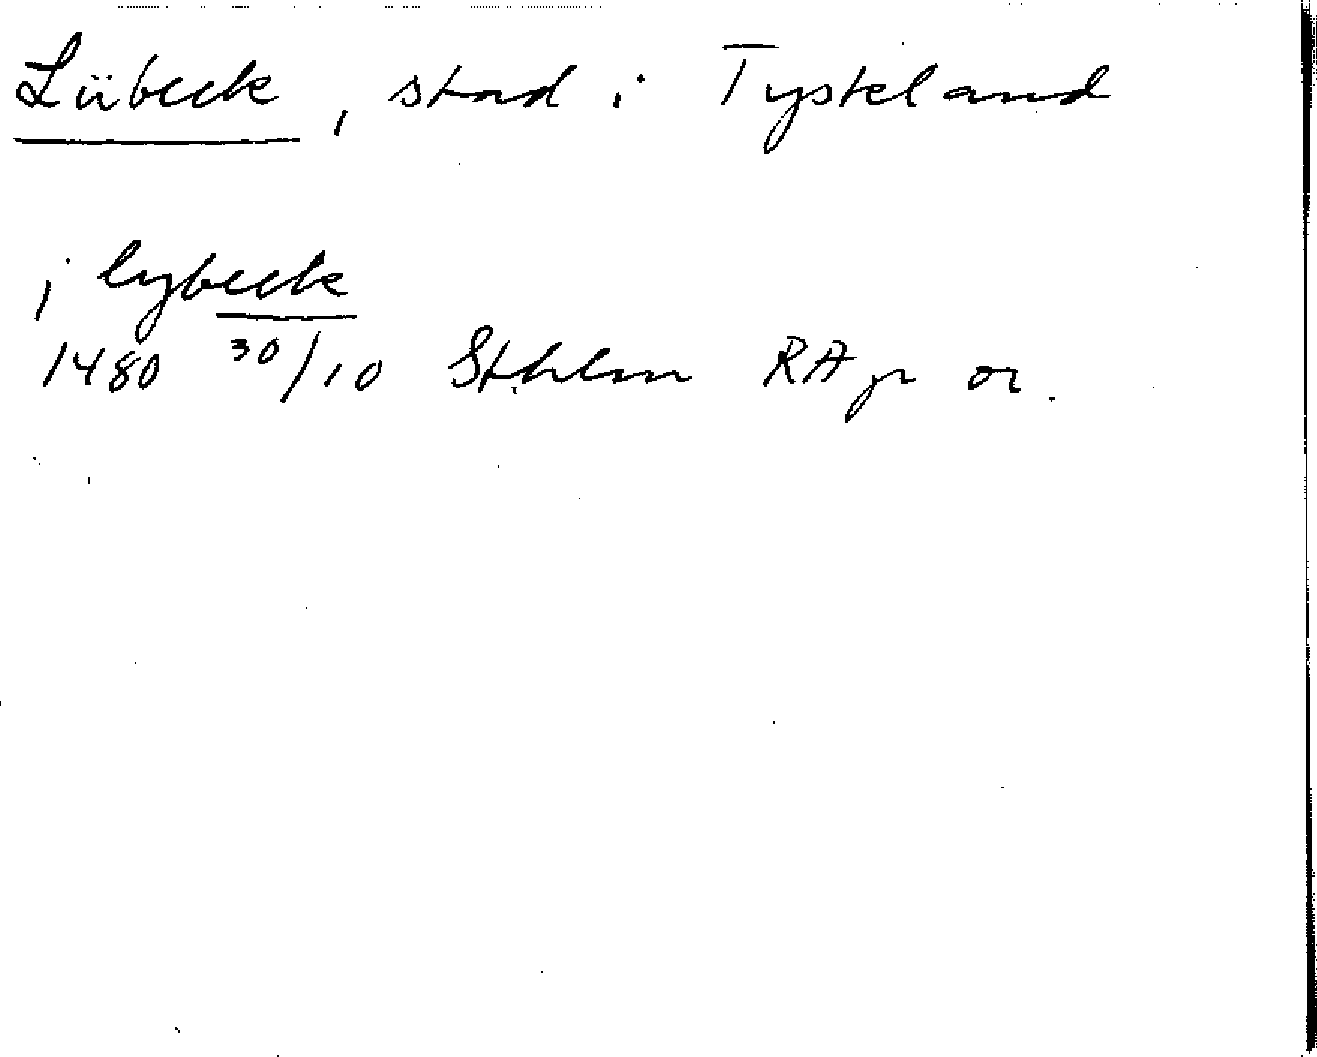 Lübeck, stad i Tyskland
j lybeck
1480 30/10 Sthlm RA p or.